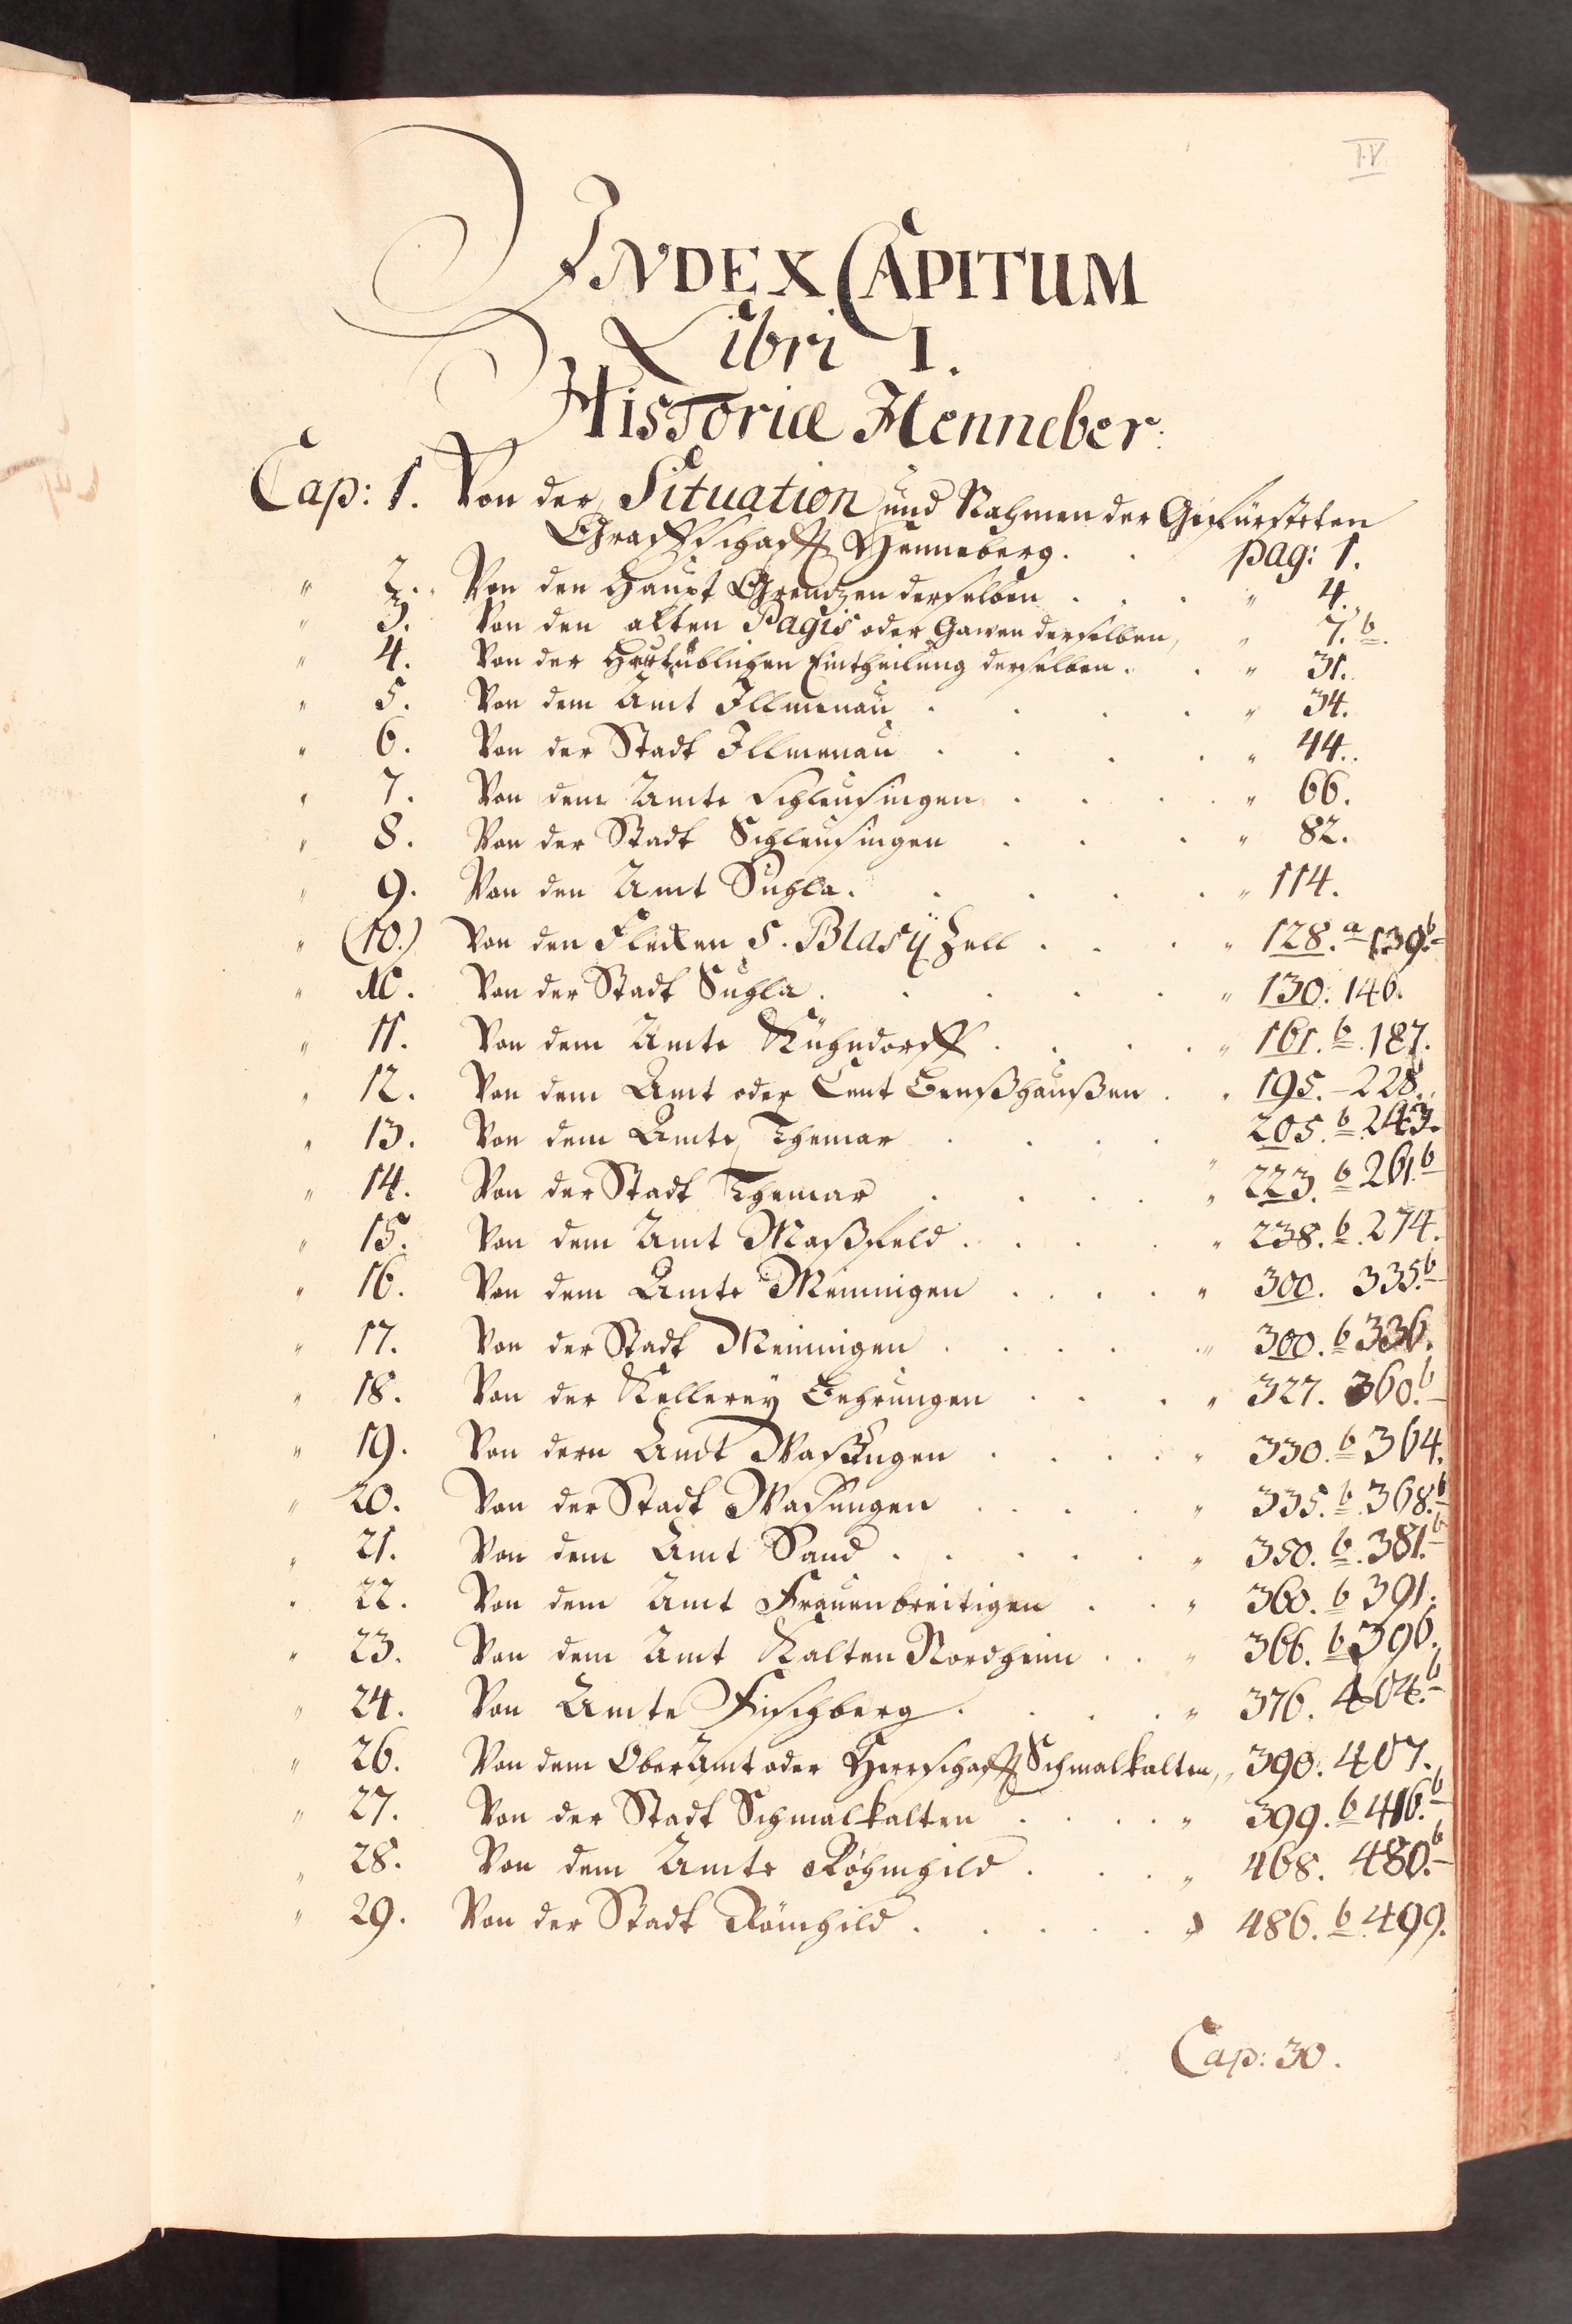 IV
INDEX CAPITUM
Libri I.
Historiæ Henneber:
Cap: 1. Von der Situation und Nahmen der Gefürsteten
Graffschafft Henneberg. . pag: 1.
" 2. Von den Haupt Grentzen derselben . . . " 4.
" 3. Von den alten Pagis oder Gawen derselben, " 7. b.
" 4. Von der Heutüblichen Eintheilung derselben. . " 31.
" 5. Von dem Amt Illmenau . . . . " 34.
" 6. Von der Stadt Illmenau . . . . " 44.
" 7. Von dem Amte Schleusingen . . . . " 66.
" 8. Von der Stadt Schleusingen . . . " 82.
" 9. Von den Amt Suhla. . . . . " 114.
" (10.) Von den Flecken S. Blasÿ Zell . . . . " 128. a 139. b
" 10. Von der Stadt Suhla. . . . . " 130. 146.
" 11. Von dem Amte Kühndorff . . . . " 161. b. 187.
" 12. Von dem Amt oder Cent Benßhaußen . . 195. - 228.
" 13. Von dem Amte Themar . . . . 205. b 243.
" 14. Von der Stadt Themar . . . . " 223. b 261. b
" 15. Von dem Amt Maßfeld. . . . . " 238. b. 274.
" 16. Von dem Amte Meiningen . . . . " 300. 335. b
" 17. Von der Stadt Meiningen . . . . " 300. b 336.
" 18. Von der Kellerey Behrungen . . . " 327. 360. b
" 19. Von dem Amt Wasungen . . . . " 330. b 364.
" 20. Von der Stadt Wasungen . . . " 335. b. 368. b
" 21. Von dem Amt Sand . . . . . " 350. b. 381. b
" 22. Von dem Amt Frauenbreitigen . . " 360. b 391.
" 23. Von dem Amt Kalten Nordheim . . " 366. b 396.
" 24. Von Amte Fischberg. . . . " 376. 404. b
" 26. Von dem Ober Amt oder Herrschafft Schmalkalten, " 390. 407.
" 27. Von der Stadt Schmalkalten . . . . " 399. b 416. b
" 28. Von dem Amte Röhmhild . . . " 468. 480. b
" 29. Von der Stadt Römhild . . . . . " 486. b 499.
Cap: 30.